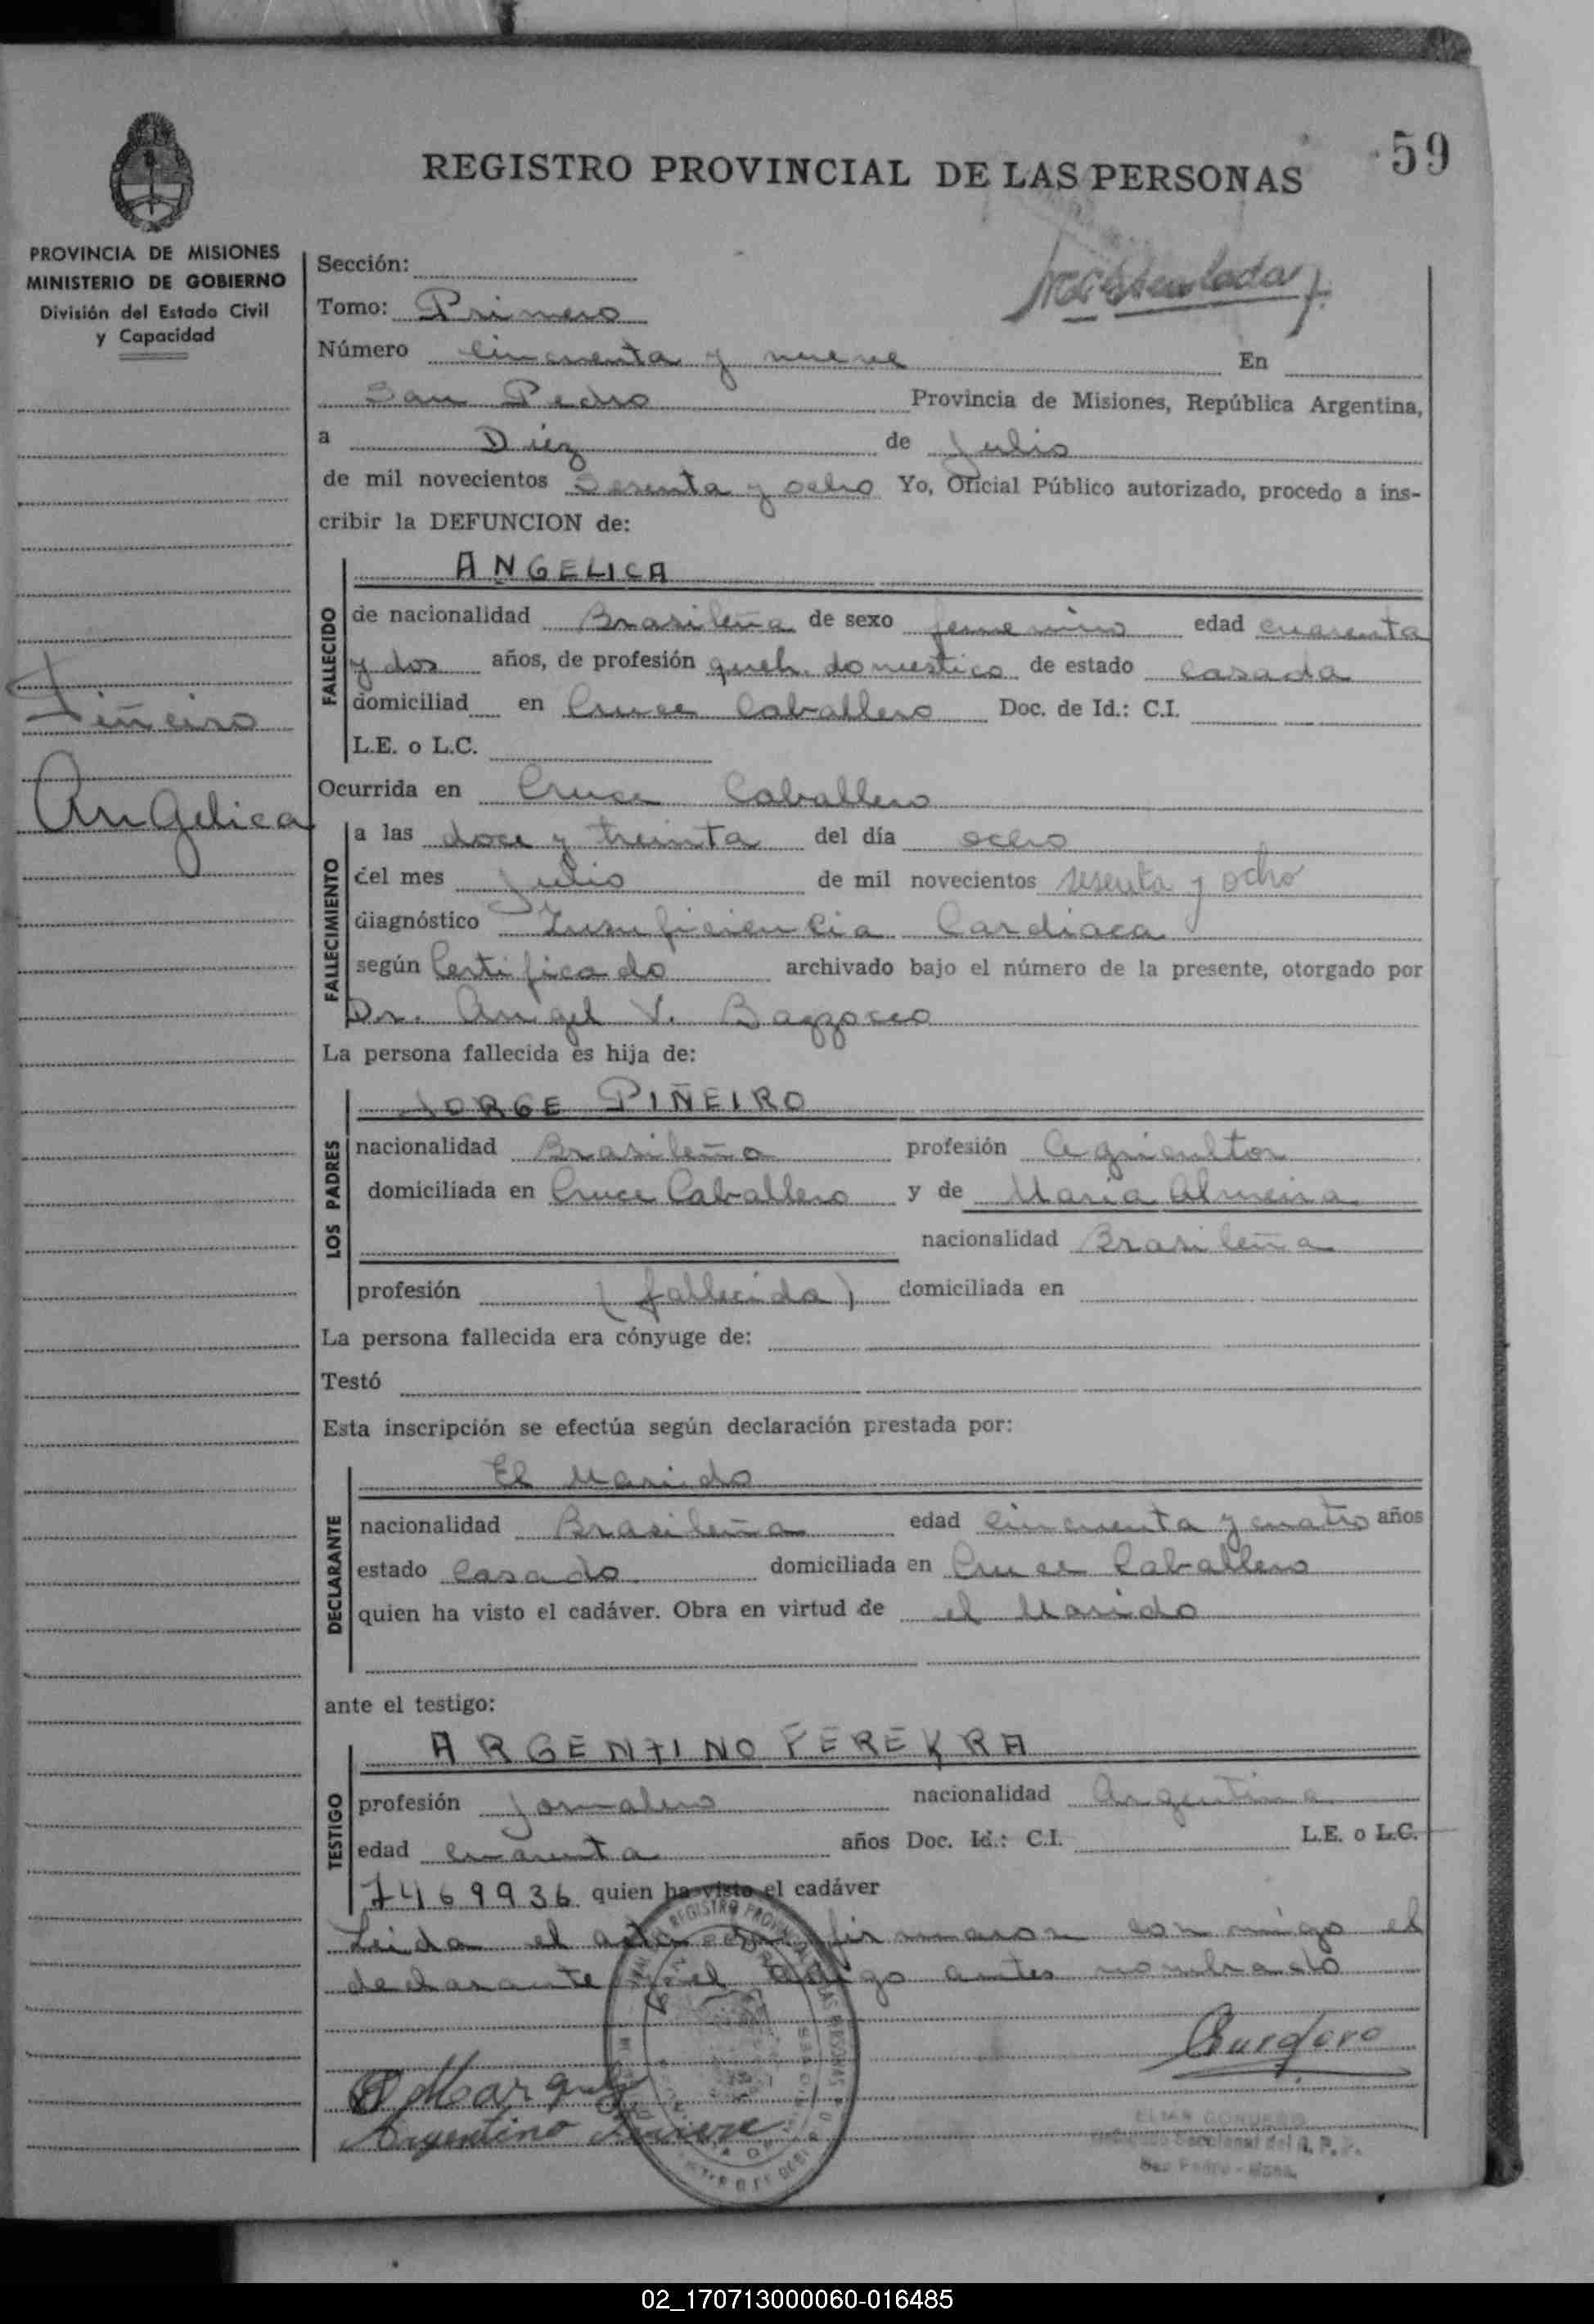 59
REGISTRO PROVINCIAL DE LAS PERSONAS
PROVINCIA DE MISIONES
MINISTERIO DE GOBIERNO
División del Estado Civil
y Capacidad
Piñeiro
Angelica
Sección:
Tomo: Primero
Número cincuenta y nueve En
San Pedro Provincia de Misiones, República Argentina,
a Diez de Julio
de mil novecientos Sesenta y ocho Yo, Oficial Público autorizado, procedo a ins-
cribir la DEFUNCION de:
ANGELICA
FALLECIDO
de nacionalidad Brasileña de sexo femenino edad cuarenta
y dos años, de profesión queh. domestico de estado casada
domiciliad en Cruce Caballero Doc. de Id.: C.I.
L.E. o L.C.
Ocurrida en Cruce Caballero
FALLECIMIENTO
a las doce y treinta del día ocho
del mes Julio de mil novecientos sesenta y ocho
diagnóstico Insuficiencia Cardiaca
según Certificado archivado bajo el número de la presente, otorgado por
Dr. Angel V. Bazzocco
La persona fallecida es hija de:
JORGE PIÑEIRO
LOS PADRES
nacionalidad Brasileña profesión Agricultor
domiciliada en Cruce Caballero y de Maria Almeira
nacionalidad Brasileña
profesión (fallecida) domiciliada en
La persona fallecida era cónyuge de:
Testó
Esta inscripción se efectúa según declaración prestada por:
El Marido
DECLARANTE
nacionalidad Brasileña edad cincuenta y cuatro años
estado Casado domiciliada en Cruce Caballero
quien ha visto el cadáver. Obra en virtud de el Marido
ante el testigo:
ARGENTINO FEREYRA
TESTIGO
profesión Jornalero nacionalidad Argentina
edad cuarenta años Doc. Id.: C.I. L.E. o L.C.
7469936 quien ha visto el cadáver
Leida el acta firmaron conmigo el
declarante y el testigo antes nombrado
Argentino
San Pedro - Mnes.
02_170713000060-016485